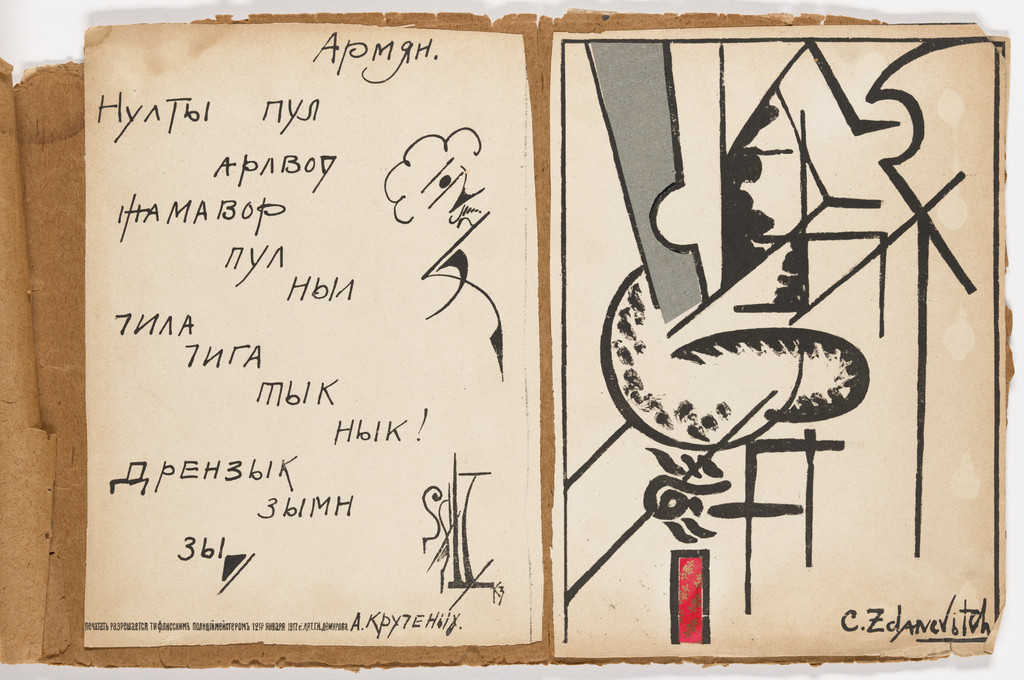 Армян.
Нулты пул
арлвод
жамавор
пул
ныл
тила
тига
тык
нык!
Дрензык
зымн
зы
Печатать разрешается Тифлисскимъ полицiймейстеромъ 19го января 1917 г. Лит. Г.Н. Демурова
А. Крученых.
КЗ
C. Zdanevitch